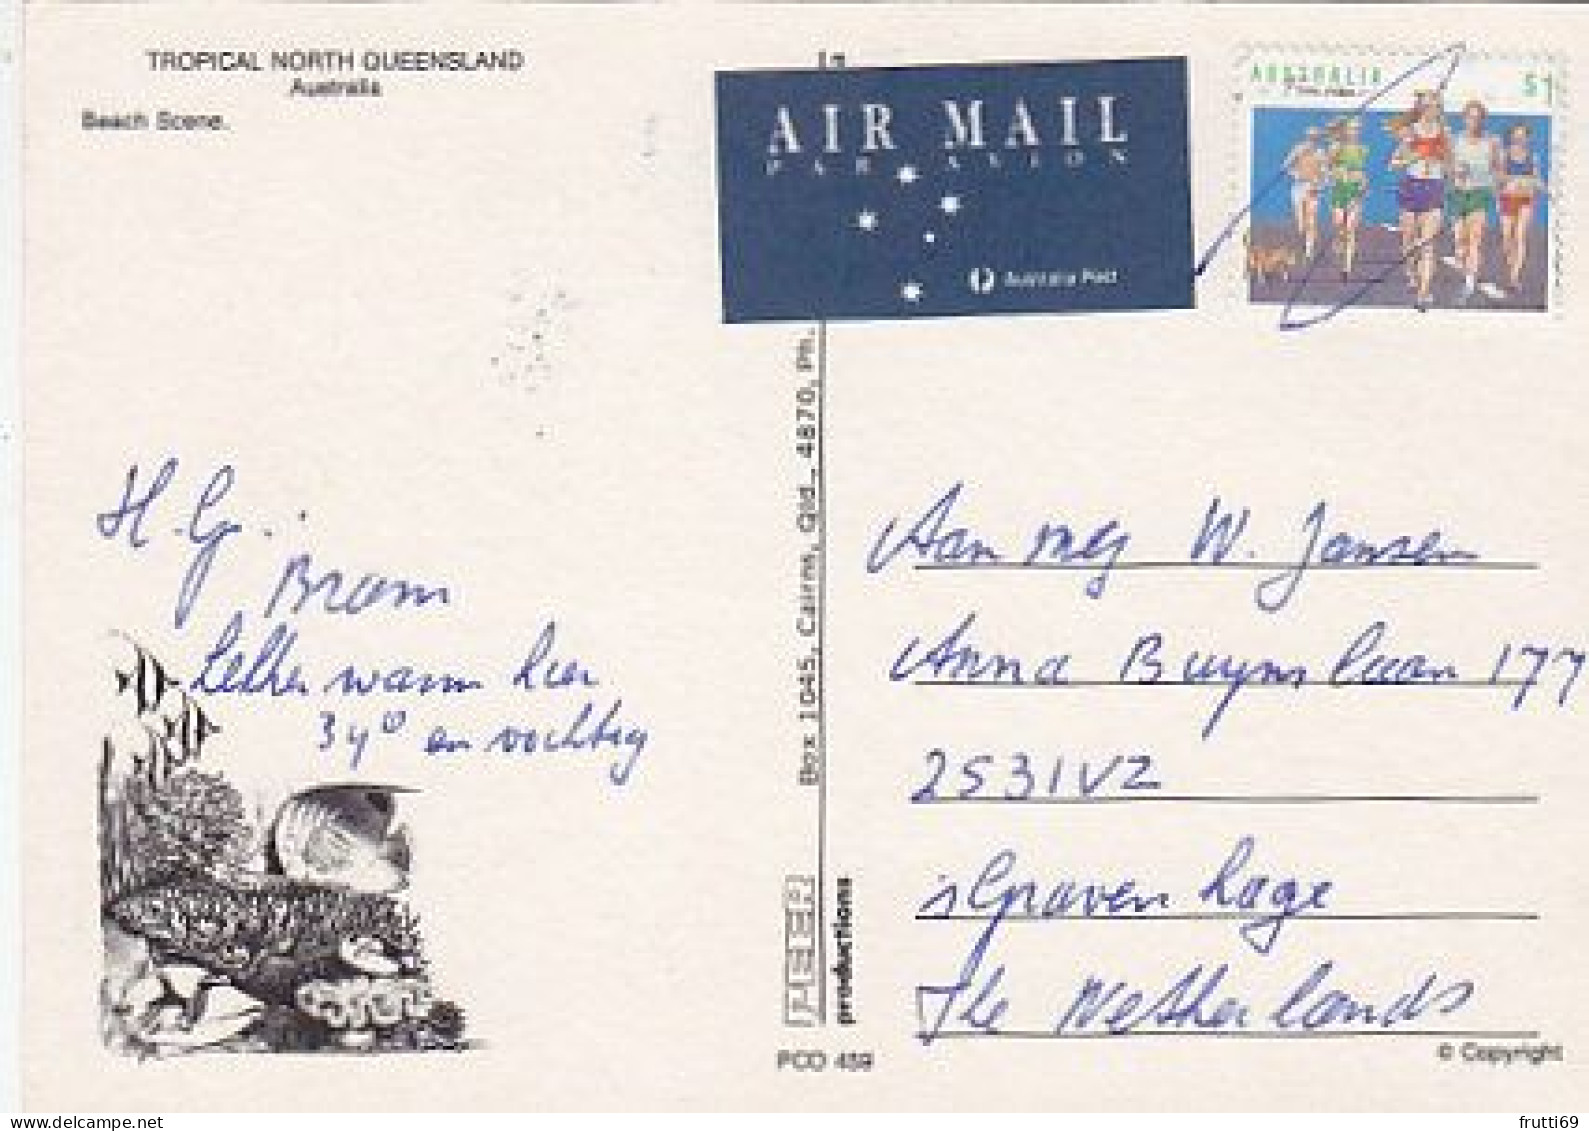 TROPICAL NORTH QUEENSLAND
Australia
Beach Scene.
AIR MAIL
PAR AVION
Australia Post
AUSTRALIA $1
H.G.
Bram
Lekker warm hier.
34° en vochtig
Box 1045, Cairns, Qld., 4870, Ph.
PEER
productions
PCD 459
Aan
W. Jansen
Anna Buynslaan 177
2531VZ
's Gravenhage
The Netherlands
© Copyright
frutti69